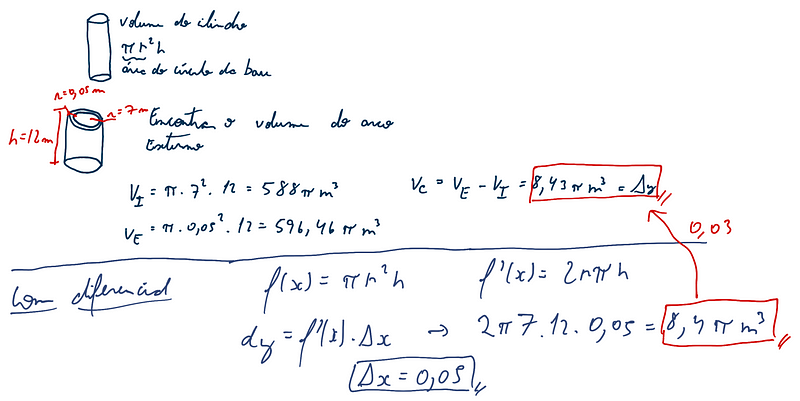 volume do cilindro
πr²h
área do círculo da base
r=0,05m
r=7m
h=12m
Encontra o volume do arco
Externo
V_I = π.7².12 = 588π m³
V_C = V_E - V_I = 8,43π m³ = Δy
V_E = π.0,05².12 = 596,46π m³
0,03
Com diferencial
f(x) = πr²h
f'(x) = 2rπh
dy = f'(x).Δx → 2π7.12.0,05 = 8,4π m³
Δx = 0,05